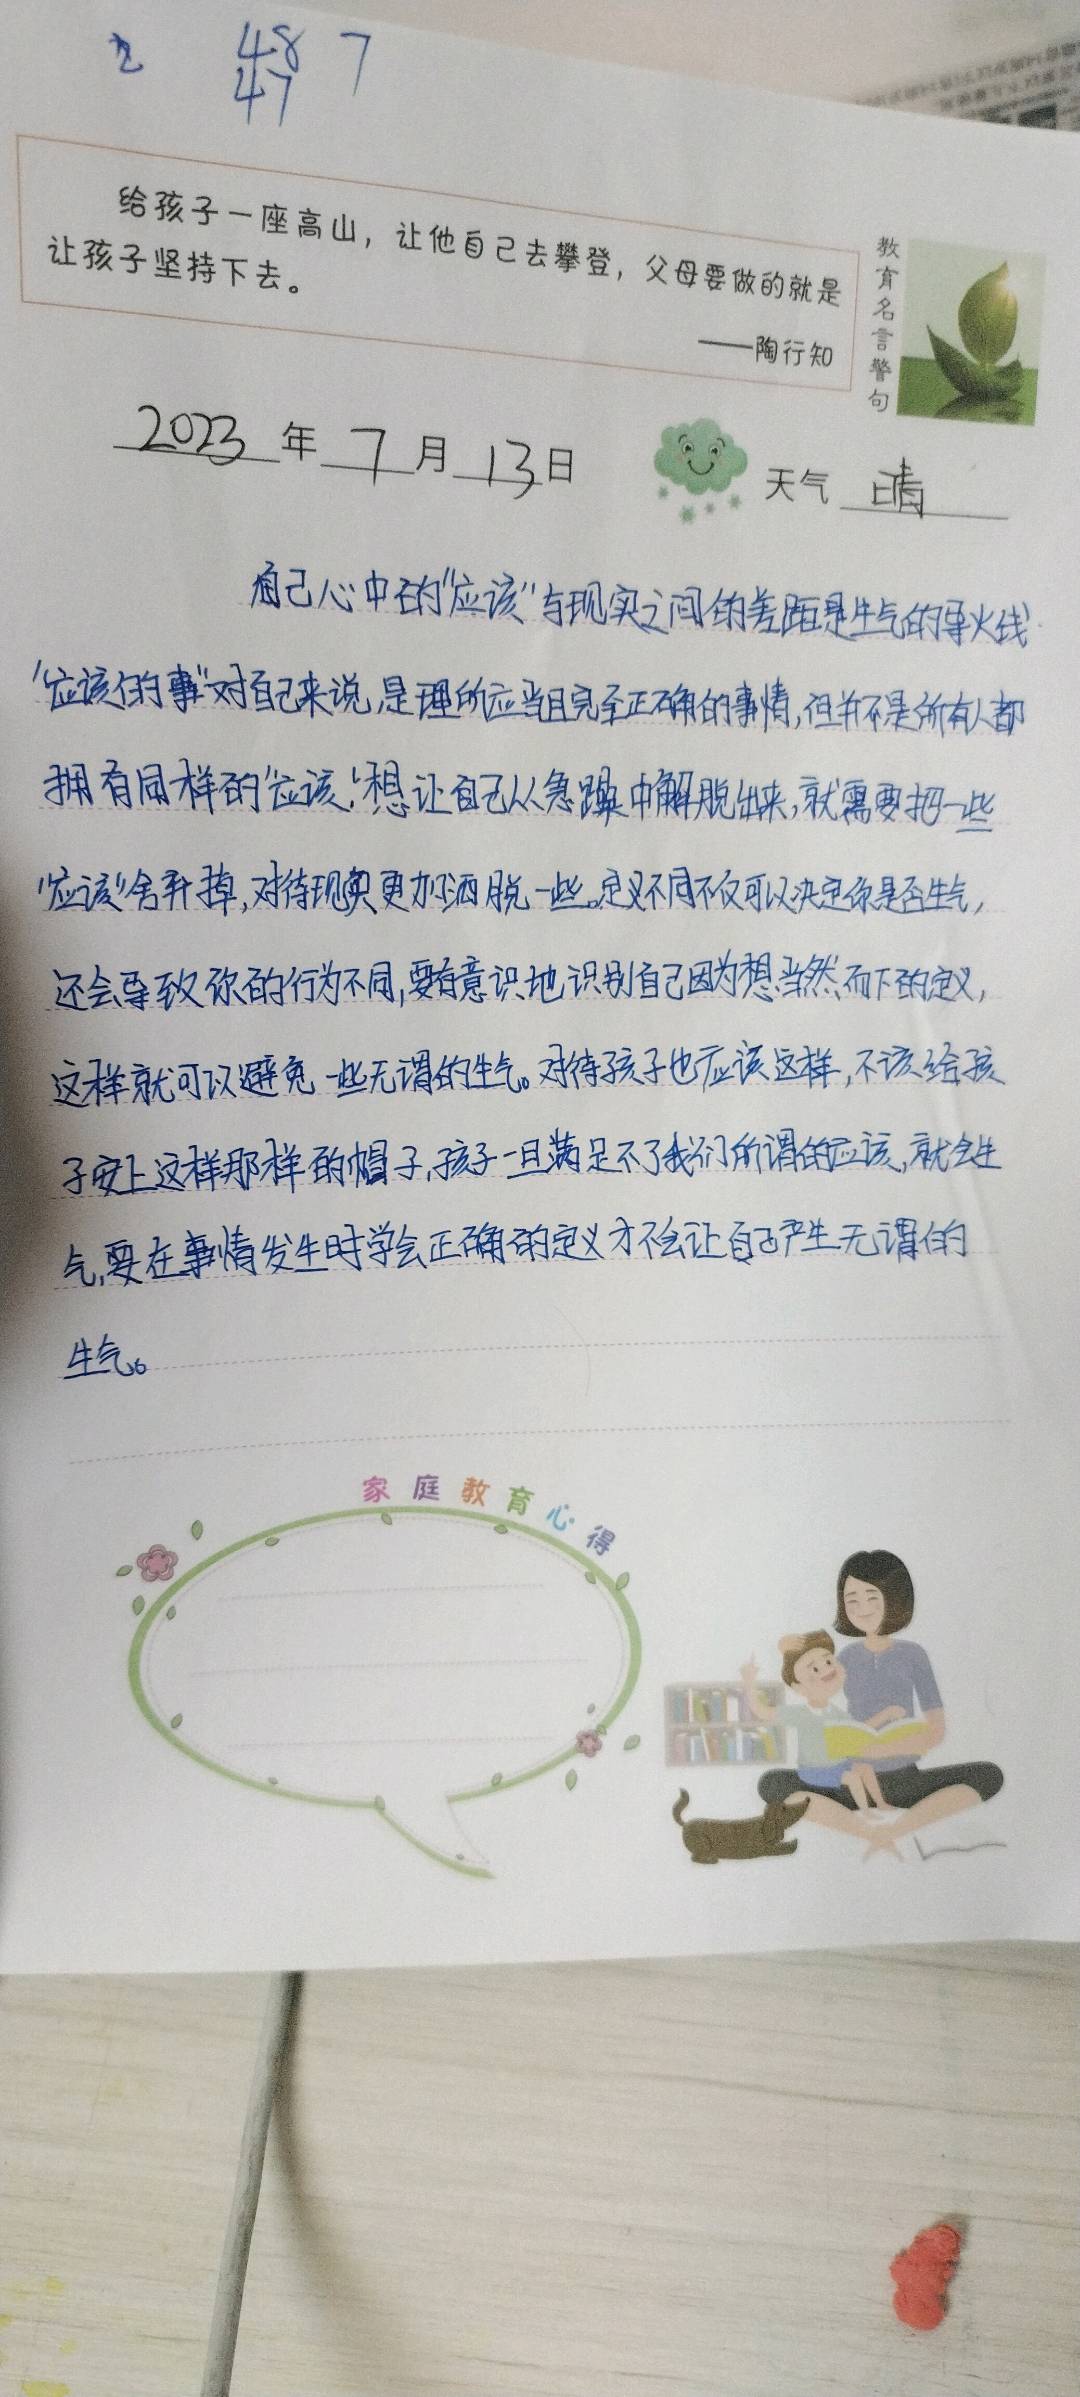 48 7
47
给孩子一座高山，让他自己去攀登，父母要做的就是
让孩子坚持下去。
——陶行知
教育名言警句
2023年7月13日
天气 晴
自己心中的“应该”与现实之间的差距是生气的导火线.
“应该的事”对自己来说,是理所应当且完全正确的事情,但并不是所有人都
拥有同样的“应该”,想让自己从急躁中解脱出来,就需要把一些
“应该”舍弃掉,对待现实更加洒脱一些。定义不同不仅可以决定你是否生气,
还会导致你的行为不同,要有意识地识别自己因为想当然而下的定义,
这样就可以避免一些无谓的生气。对待孩子也应该这样,不该给孩
子安上这样那样的帽子,孩子一旦满足不了我们所谓的应该,就会生
气,要在事情发生时学会正确的定义才不会让自己产生无谓的
生气。
家庭教育心得